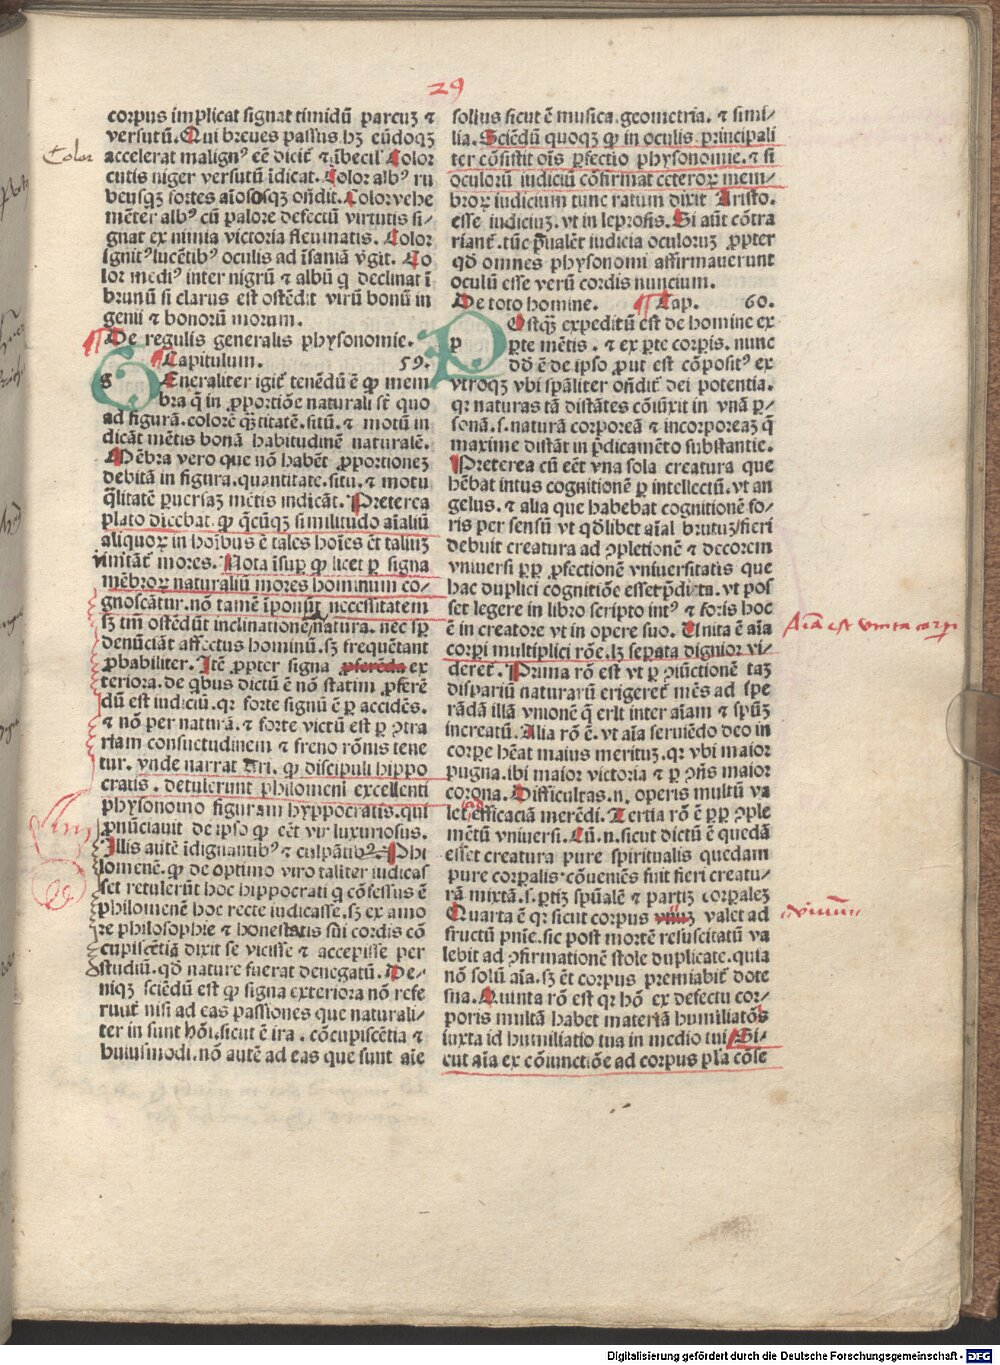 29
corpus implicat signat timidū parcuꝫ ⁊
versutū. Qui breues passus hꝫ eūdoqꝫ
Color
accelerat malignꝰ eē dicit̄ ⁊ ībecil̄ Color
cutis niger versutū īdicat. Color albꝰ ru
beusqꝫ fortes aīososqꝫ oñdit. Color vehe
mēter albꝰ cū palore defectū virtutis si⸗
gnat ex nimia victoria fleumatis. Color
ignitꝰ lucētibꝰ oculis ad īsaniā v̄git. Co
lor mediꝰ inter nigrū ⁊ albū q̄ declinat ī
brunū si clarus est ostēdit virū bonū in
genii ⁊ bonorū morum.
De regulis generalis physonomie.
Capitulum. 59.
g Eneraliter igit̄ tenēdū ē ꝙ mem
bra q̄ in ꝓportiōe naturali sūt quo
ad figurā. colorē q̄̄titatē. sitū. ⁊ motū in
dicāt mētis bonā habitudinē naturalē.
Mēbra vero que nō habēt ꝓportionez
debitā in figura. quantitate. situ. ⁊ motu
q̄litatē ꝑuersaꝫ mētis indicāt. Preterea
plato dicebat ꝙ q̄cūqꝫ similitudo aīaliū
aliquoꝝ in hoībus ē tales hoīes ēt taliuꝫ
imitāt̄ mores. Nota īsuꝑ ꝙ licet ꝑ signa
mēbroꝝ naturaliū mores hominum co⸗
gnoscātur. nō tamē īponūt necessitatem
sꝫ tm̄ ostēdūt inclinationē natura. nec sꝑ
denūciāt affectus hominū. sꝫ frequētant
ꝓbabiliter. Itē ꝓpter signa ꝓferēda ex
teriora. de qbus dictū ē nō statim ꝓferē
dū est iudiciū. qꝛ forte signū ē ꝑ accidēs.
⁊ nō per naturā. ⁊ forte victū est ꝑ ꝯtra
riam consuetudinem ⁊ freno rōnis tene
tur. vnde narrat Ari. ꝙ discipuli hippo
cratis. detulerunt philomeni excellenti
physonomo figuram hyppocratis. qui
ꝓnūciauit de ipso ꝙ eēt vir luxuriosus.
Illis autē īdignantibꝰ ⁊ culpātibꝰ Phi
lomenē. ꝙ de optimo viro taliter iudicas
set retulerūt hoc hippocrati q cōfessus ē
philomenē hoc recte iudicasse. sꝫ ex amo
re philosophie ⁊ honestatis sui cordis cō
cupiscētiā dixit se vicisse ⁊ accepisse per
studiū. qd̄ nature fuerat denegatū. De⸗
niqꝫ sciēdū est ꝙ signa exteriora nō refe
runt̄ nisi ad eas passiones que naturali⸗
ter in sunt hōi. sicut ē ira. cōcupiscētia ⁊
huiusmodi. nō autē ad eas que sunt aīe
solius sicut ē musica. geometria. ⁊ simi⸗
lia. Sciēdū quoqꝫ ꝙ in oculis principali
ter cōsistit oīs ꝑfectio physonomie. ⁊ si
oculorū iudiciū cōfirmat ceteroꝝ mem⸗
broꝝ iudicium tunc ratum dixit Aristo.
esse iudiciuꝫ. vt in leprosis. Si aūt cōtra
riant̄. tūc p̄ualēt iudicia oculoruꝫ ꝓpter
qd̄ omnes physonomi affirmauerunt
oculū esse verū cordis nuncium.
De toto homine. Cap. 60.
p Ostqꝫ expeditū est de homine ex
ꝑte mētis. ⁊ ex ꝑte corꝑis. nunc
dd̄ ē de ipso ꝓut est cōpositꝰ ex
vtroqꝫ vbi spāliter oñdit̄ dei potentia.
qꝛ naturas tā distātes cōiūxit in vnā ꝑ⸗
sonā. s. naturā corporeā ⁊ incorporeaꝫ q̄
maxime distāt in p̄dicamēto substantie.
Preterea cū eēt vna sola creatura que
hēbat intus cognitionē ꝑ intellectū. vt an
gelus. ⁊ alia que habebat cognitionē fo⸗
ris per sensū vt qd̄libet aīal brutuꝫ/fieri
debuit creatura ad ꝯpletionē ⁊ decorem
vniuersi ꝓꝑ ꝑfectionē vniuersitatis que
hac duplici cognitiōe esset p̄dita. vt pos
set legere in libro scripto intꝰ ⁊ foris hoc
ē in creatore vt in opere suo. Unita ē aīa
Aīa est vnita corpi
corꝑi multiplici rōe. lꝫ seꝑata dignior vi⸗
deret̄. Prima rō est vt ꝑ ꝯiūctionē taꝫ
dispariū naturarū erigeret̄ mēs ad spe
rādā illā vnionē q̄ erit inter aīam ⁊ spūꝫ
increatū. Alia rō ē. vt aīa seruiēdo deo in
corꝑe hēat maius meritūꝫ. qꝛ vbi maior
pugna. ibi maior victoria ⁊ ꝑ ꝯn̄s maior
corona. Difficultas. n. operis multū va
let efficaciā merēdi. Tertia rō ē ꝓꝑ ꝯple
mētū vniuersi. Cū. n. sicut dictū ē quedā
esset creatura pure spiritualis quedam
pure corꝑalis cōueniēs fuit fieri creatu⸗
rā mixtā. s. ꝑtiꝫ spūalē ⁊ partiꝫ corꝑaleꝫ
Quarta ē qꝛ sicut corpus viuuꝫ valet ad
fructū pn̄ie. sic post mortē resuscitatū va
lebit ad ꝯfirmationē stole duplicate. quia
nō solū aīa. sꝫ ēt corpus premiabit̄ dote
sua. Quinta rō est qꝛ hō ex defectu cor⸗
poris multā habet materiā humiliatōis
iuxta id humiliatio tua in medio tui Si⸗
cut aīa ex cōiunctiōe ad corpus pl̄a cōse
Digitalisierung gefördert durch die Deutsche Forschungsgemeinschaft - DFG